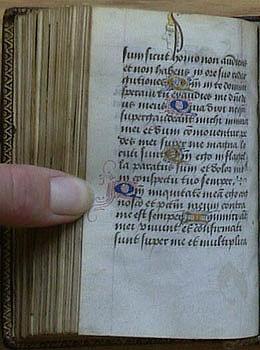 sum sicut homo non audiens
et non habens in ore suo redar
gutiones Qm in te domine
speravi tu exaudies me dne de
us meus Quia dixi neqn
supergaudeant michi inimici
mei et dum commoventur pe
des mei super me magna lo
cuti sunt Qm ego in flagel
la paratus sum et dolor me
in conspectu tuo semper
Qm iniquitatē meā ego cog
nosco et pctm meum contra
me est semper inimici au
mei vivunt et confirmati
sunt super me et multiplica